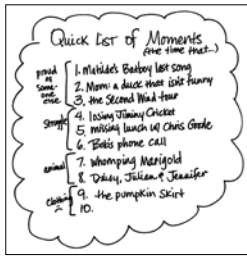 Quick List of Moments
(the time that...)
proud
of
some-
one
else
1. Matilda's Badboy last song
2. Mom: a duck that isn't funny
3. the Second Wind tour
struggle
4. losing Jiminy Cricket
5. missing lunch w/ Chris Goode
6. Bob's phone call
animal
7. Whomping Marigold
8. Daisy, Julian & Jennifer
clothing
9. the pumpkin skirt
10.